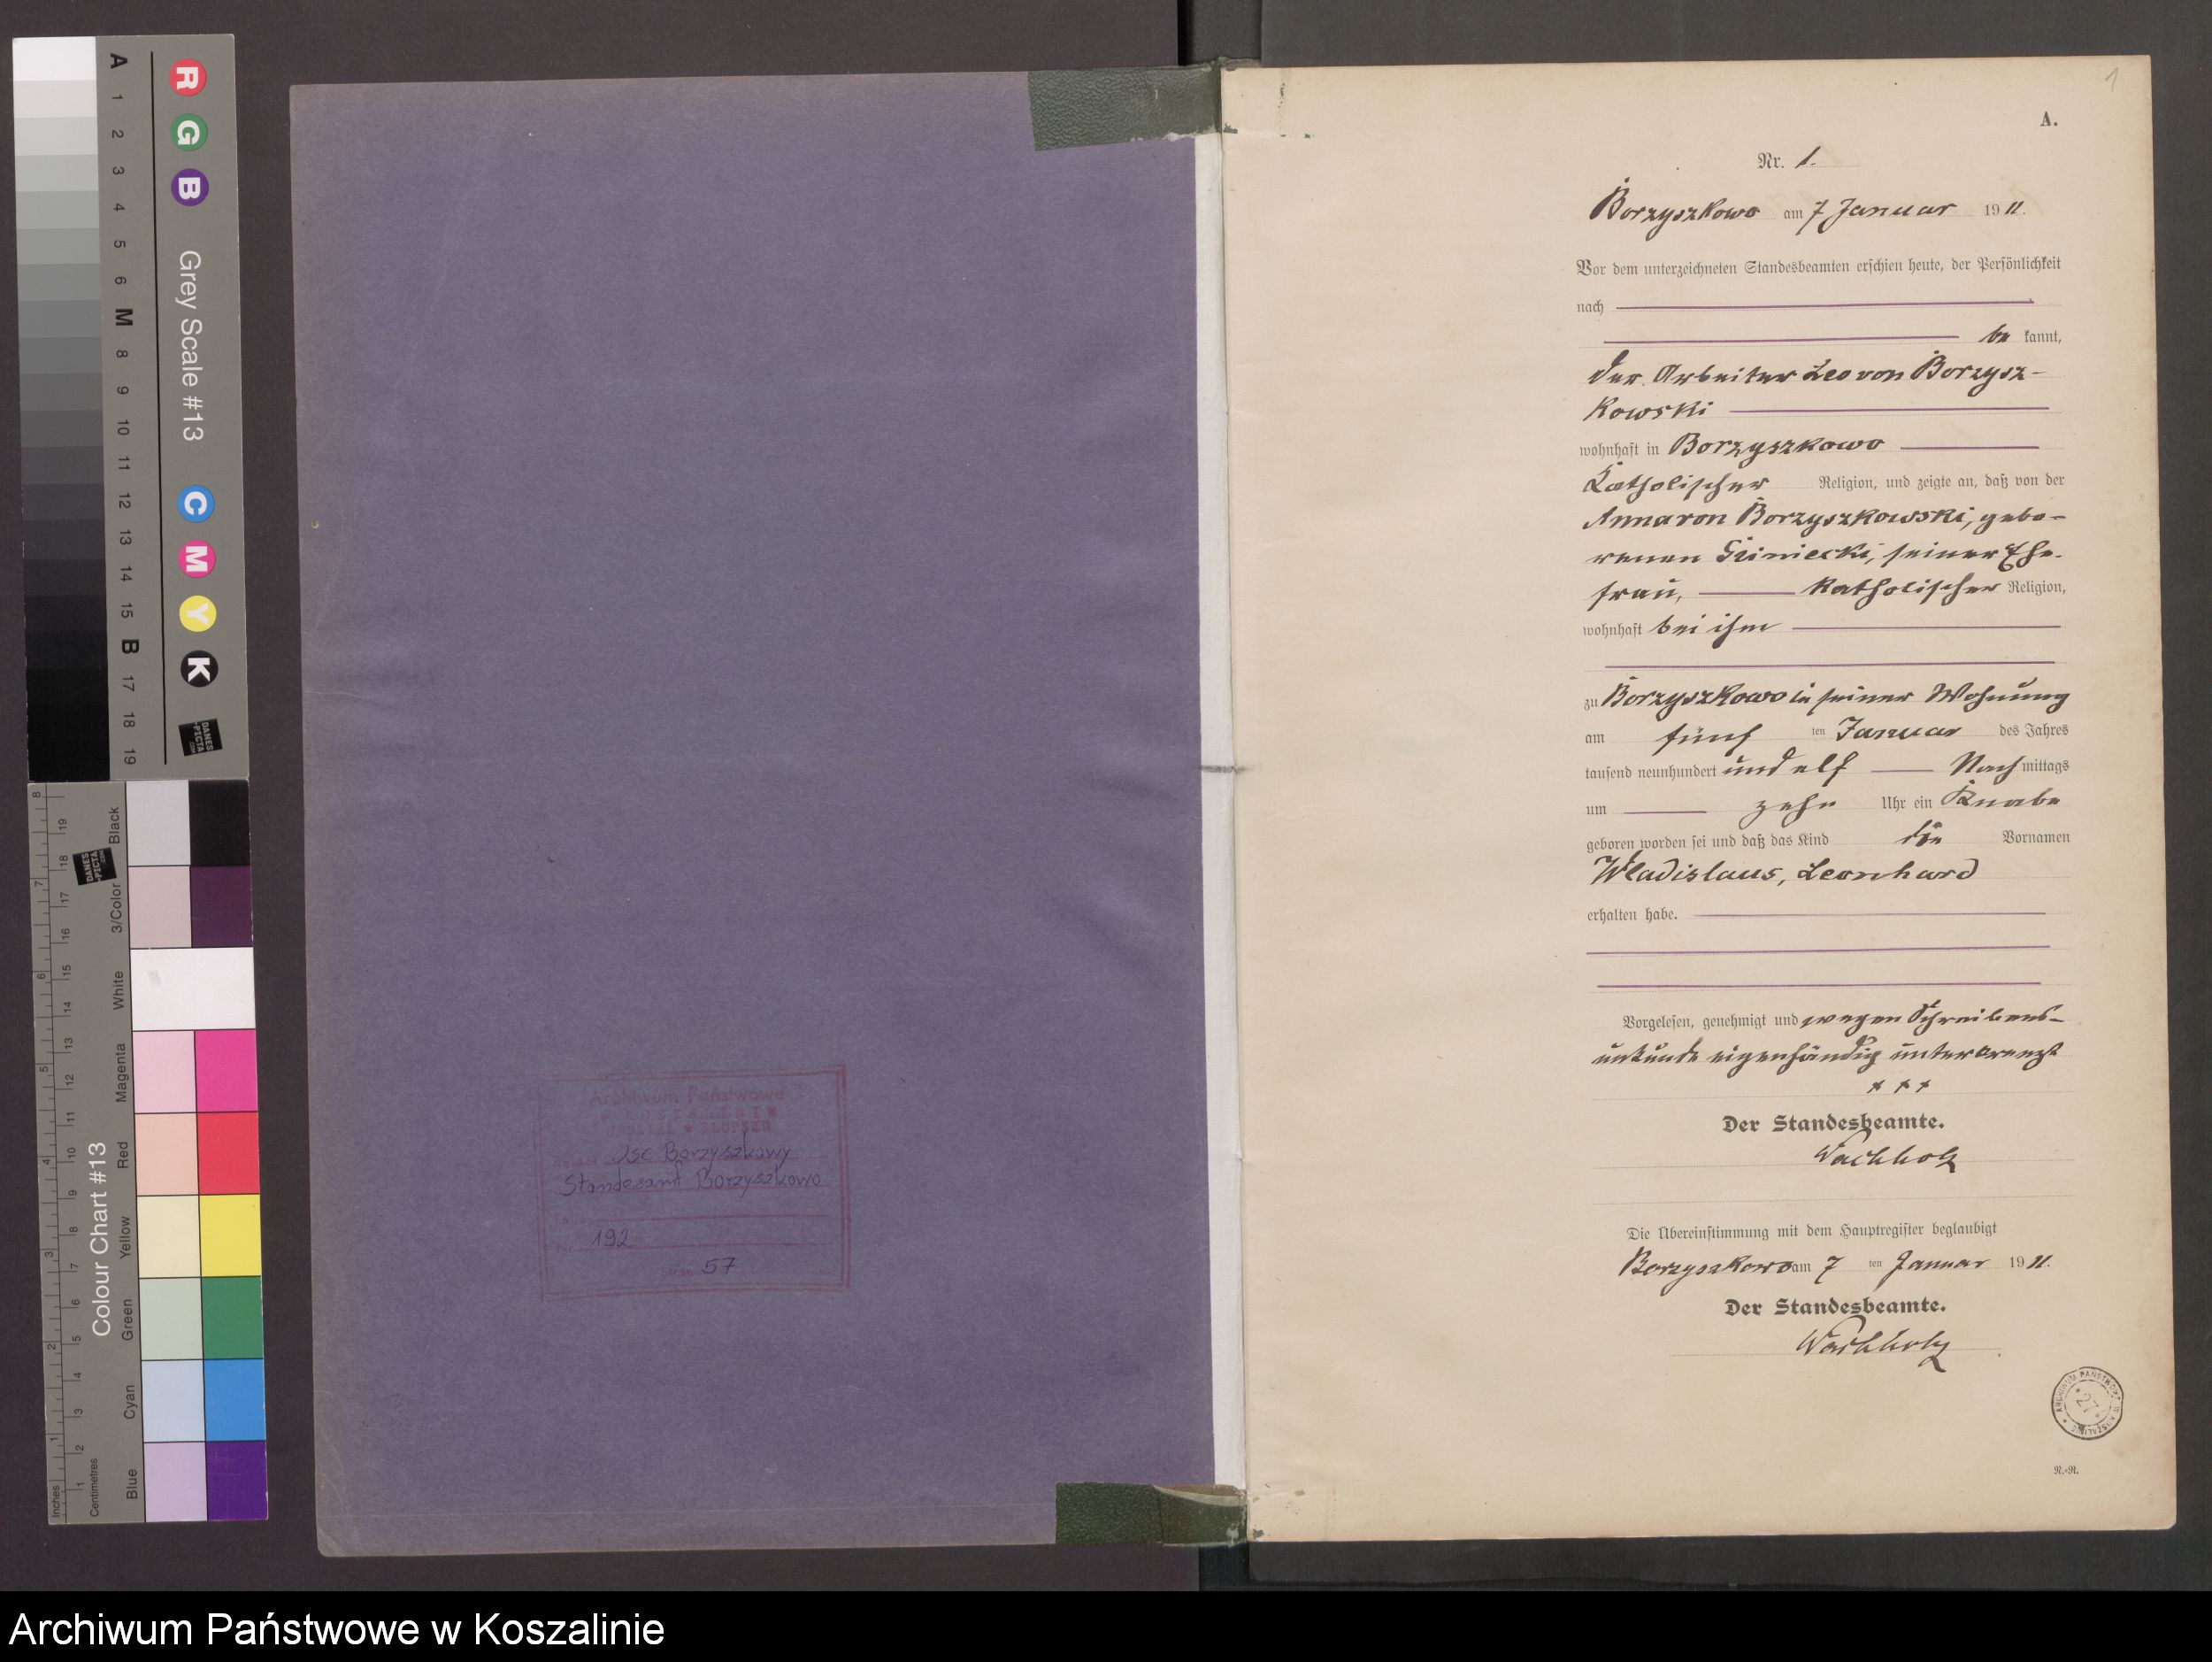 A 1 2 3 4 5 6 M 8 9 10 11 12 13 14 15 B 17 18 19
R G B
Grey Scale #13
C M Y K
DANES
-PICTA
.COM
Colour Chart #13
Black
3/Color
White
Magenta
Red
Yellow
Green
Cyan
Blue
Inches
Centimetres
Archiwum Państwowe
USC Borzyszkowy
Standesamt Borzyszkowo
192
57
1
A.
Nr. 1.
Borzyszkowo am 7 Januar 1911.
Vor dem unterzeichneten Standesbeamten erschien heute, der Persönlichkeit
nach
be kannt,
der Arbeiter Leo von Borzysz-
kowski
wohnhaft in Borzyszkowo
Katholischer Religion, und zeigte an, daß von der
Anna von Borzyszkowski, gebo-
renen seiner Ehe-
frau, katholischer Religion,
wohnhaft bei ihm
zu Borzyszkowo in seiner Wohnung
am fünf ten Januar des Jahres
tausend neunhundert und elf Nach mittags
um zehn Uhr ein Knabe
geboren worden sei und daß das Kind die Vornamen
Wladislaus, Leonhard
erhalten habe.
Vorgelesen, genehmigt und wegen Schreibens-
unkunde eigenhändig unterkreuzt
+ + +
Der Standesbeamte.
Wachholz
Die Übereinstimmung mit dem Hauptregister beglaubigt
Borzyszkowo am 7 ten Januar 1911.
Der Standesbeamte.
Wachholz
ARCHIWUM PAŃSTWOWE W KOSZALINIE
27
N.-R.
Archiwum Państwowe w Koszalinie